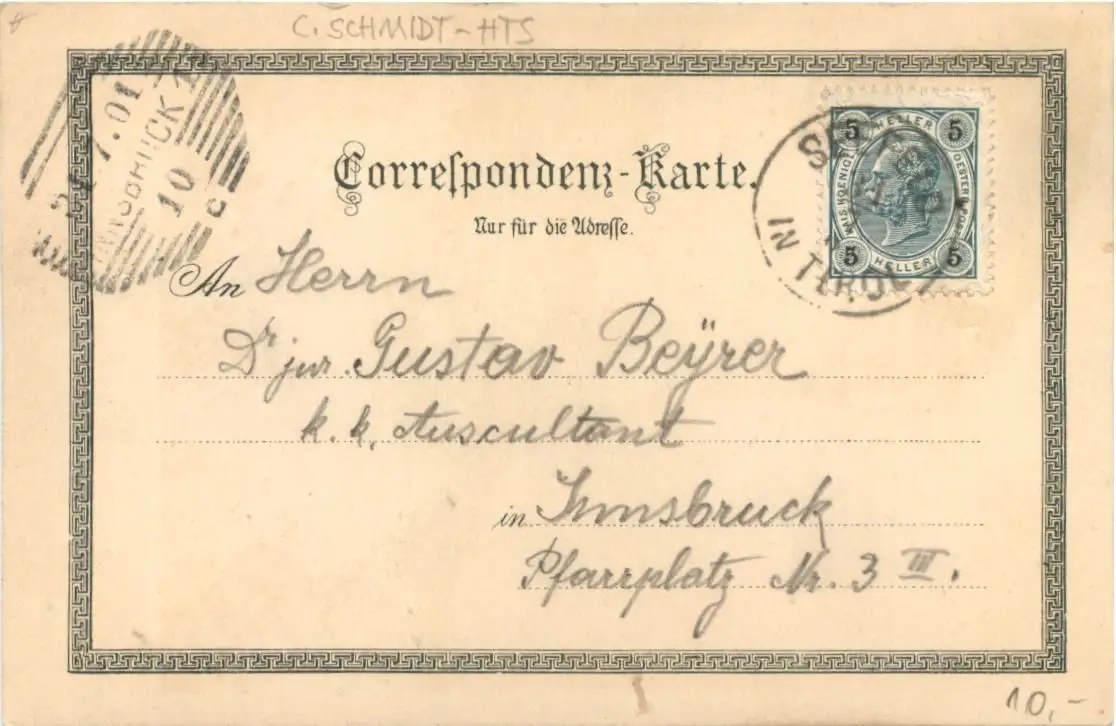 C. SCHMIDT-HTS
7.01
INNSBRUCK 1
10
C
Correſpondenz-Karte.
Nur für die Adreſſe.
5 HELLER 5
KAIS. KOENIGL. OESTERR. POST
5 HELLER 5
IN TIROL
An Herrn
Dr jur. Gustav Beÿrer
k. k. Auscultant
in Innsbruck
Pfarrplatz Nr. 3 III.
10,-